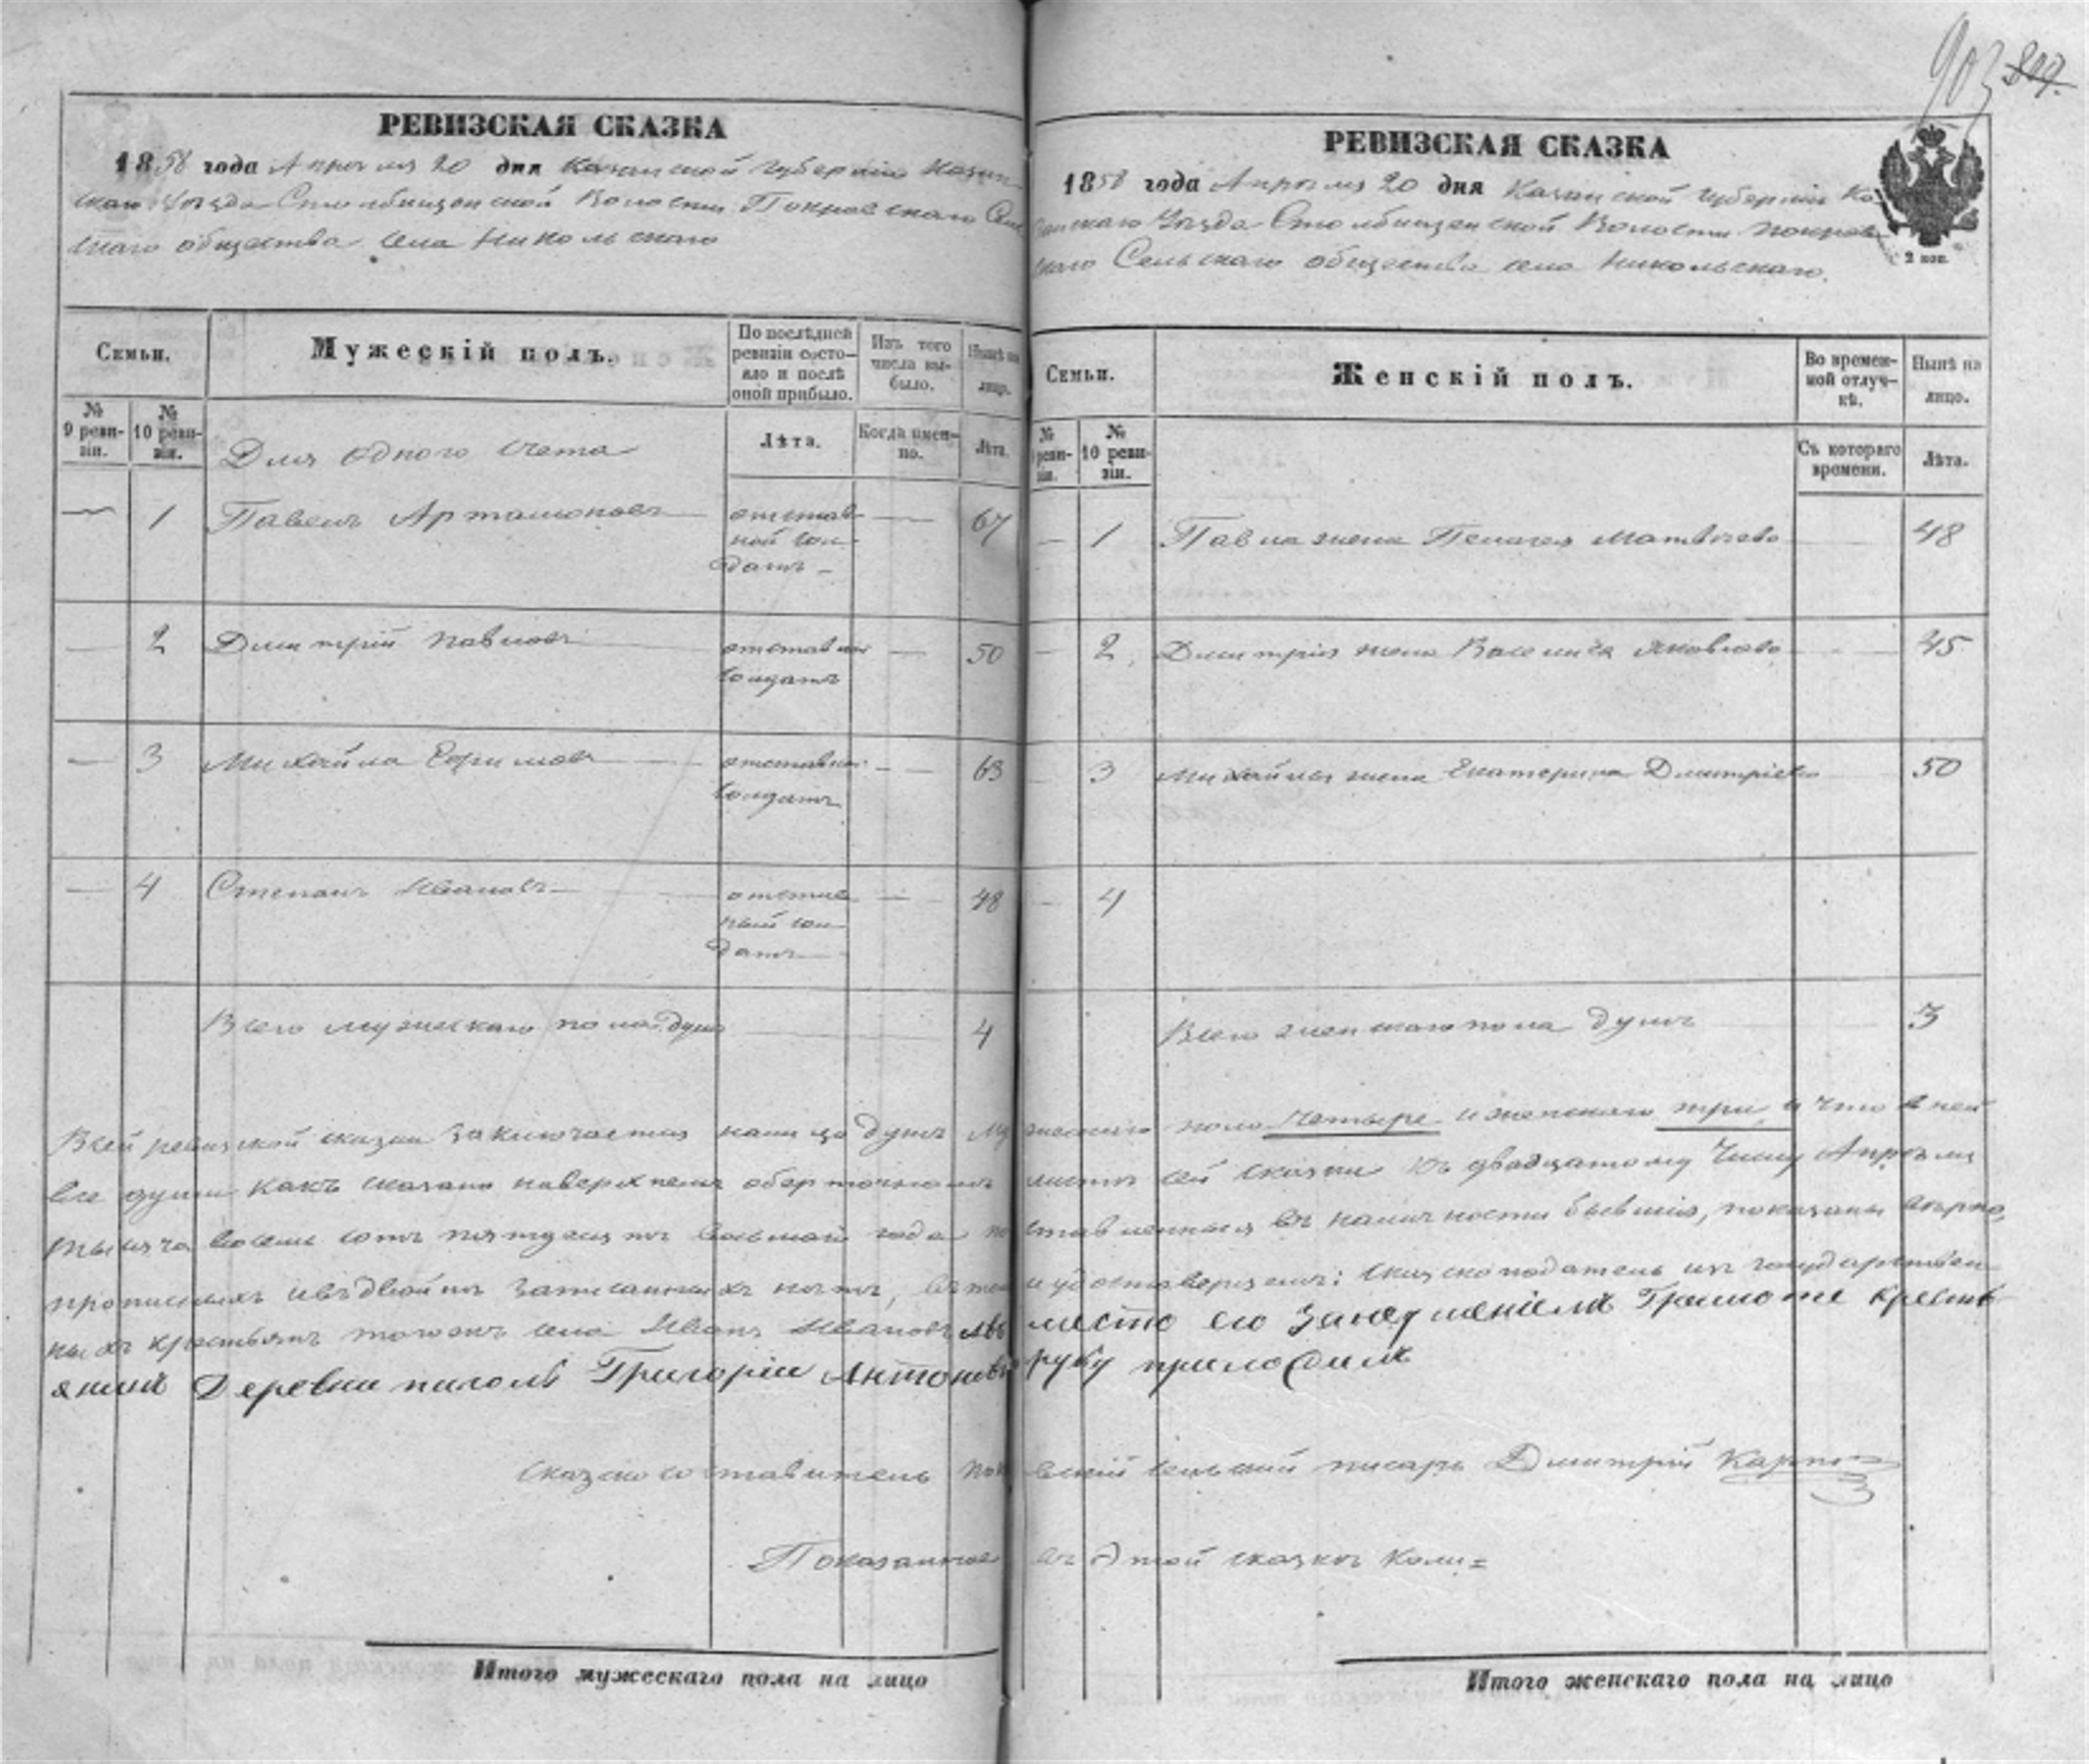 903 807.
РЕВИЗСКАЯ СКАЗКА
1858 года Апреля 20 дня Казанской Губернiи Казан-
скаго Уезда Столбищенской Волости Покровскаго Сель
скаго общества села Никольскаго
Семьи.
Мужескiй полъ.
По послѣдней ревизiи состо-
яло и послѣ оной прибыло.
Изъ того числа вы-
было.
Нынѣ на лицо.
№ 9 реви-
зiи.
№ 10 реви-
зiи.
Для одного счета
Лѣта.
Когда имен-
но.
Лѣта.
1 Павелъ Артамоновъ отстав 67
ной сол
датъ
2 Дмитрiй Павловъ отставной 50
солдатъ
3 Михайла Ефимовъ отставной 63
солдатъ
4 Степанъ Ивановъ отстав 48
ный сол
датъ
Всего мужескаго пола душъ 4
РЕВИЗСКАЯ СКАЗКА
1858 года Апреля 20 дня Казанской Губернiи Ка-
занскаго Уезда Столбищенской Волости Покров
скаго Сельскаго общества села Никольскаго.
2 коп.
Семьи.
Женскiй полъ.
Во времен-
ной отлуч-
кѣ.
Нынѣ на лицо.
№ реви-
зiи.
№ 10 реви-
зiи.
Съ котораго времени.
Лѣта.
1 Павла жена Пелагея Матвѣева 48
2 Дмитрiя жена Василиса Яковлева 45
3 Михайлы жена Екатерина Дмитрiева 50
4
Всего женскаго пола душъ 3
Всей ревизской сказки заключается на лицо душъ мужескаго пола четыре и женскаго три и что в ней
все души какъ сказано наверхнемъ оберточномъ листѣ сей сказки къ двадцатому числу Апрѣля
тысяча восемь сотъ пятдесятъ восьмой года поставленныя въ наличности бывшiя, показаны вѣрно,
прописныхъ и въ двойнѣ записанныхъ нѣтъ, въ томъ и удостоверяемъ: сказкоподатель изъ государствен
ныхъ крестьянъ тогожъ села Иванъ Ивановъ место его занеуменiемъ Грамоте кресть
янинъ Деревни Григорiи Антоновъ руку приложилъ
Сказкосоставитель Покровскiй Сельскiй писарь Дмитрiй Карпов
Показанное въ этой сказкѣ коли=
Итого мужескаго пола на лицо
Итого женскаго пола на лицо